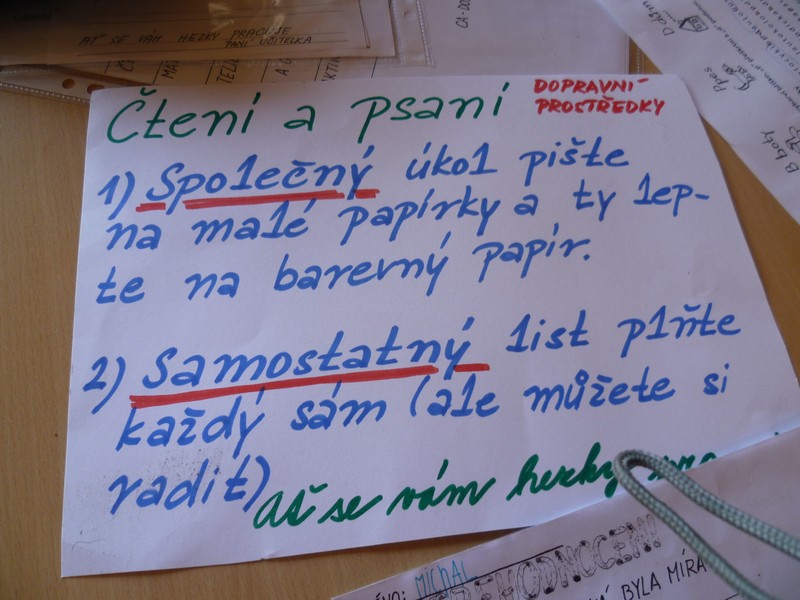 AŤ SE VÁM HEZKY PRACUJE
PANÍ UČITELKA
Čtení a psaní
DOPRAVNÍ
PROSTŘEDKY
1) Společný úkol pište
na malé papírky a ty lep-
te na barevný papír.
2) Samostatný list plňte
každý sám (ale můžete si
radit)
Ať se vám hezky
MICHAL
HODNOCENÍ
BYLA MÍRA
boty